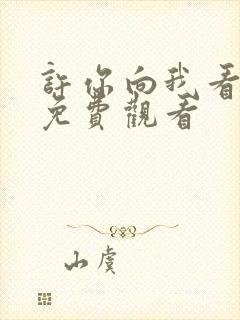 許你向我看
免費觀看
山虞